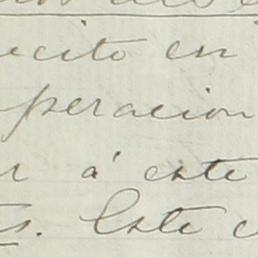 ecito en
peracion
r á este
s. Este c